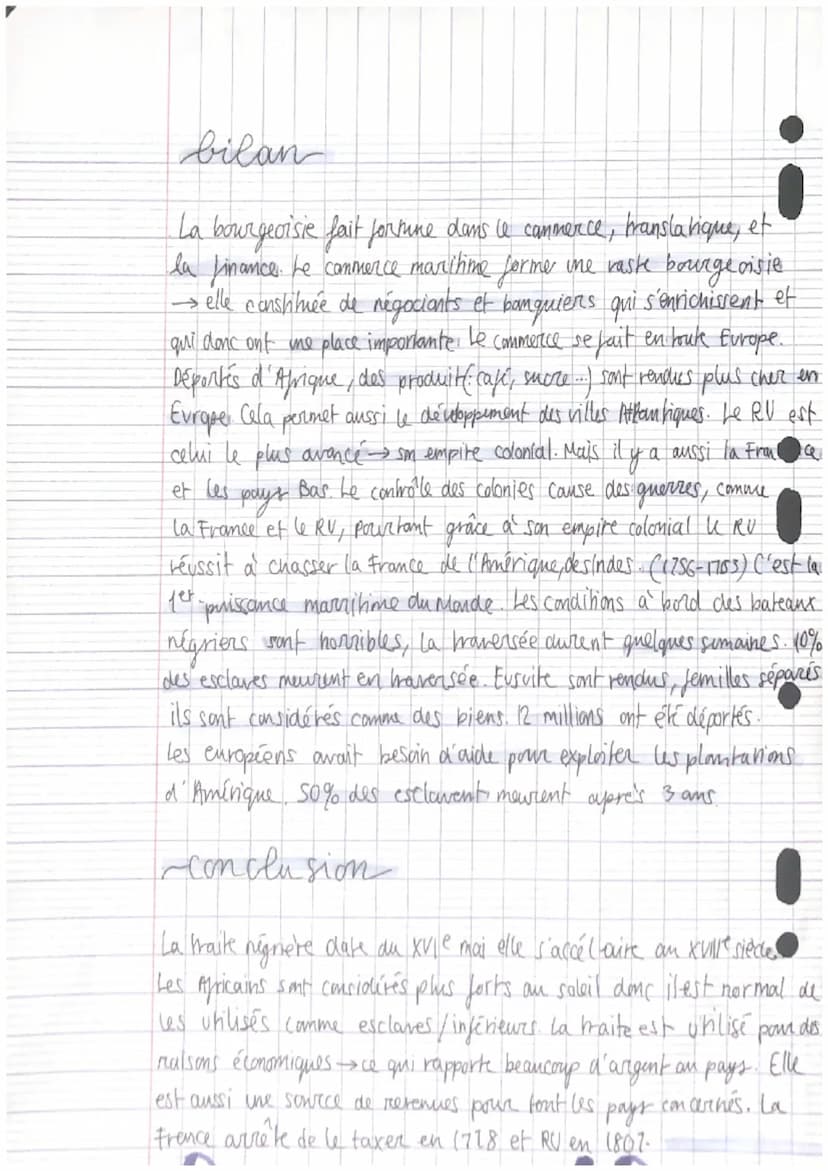 bilan
La bourgeoisie fait fortune dans le commerce, translatique, et
la finance. Le commerce maritime former une vaste bourgeoisie
→ elle constituée de négociants et banquiers qui s'enrichissent et
qui donc ont une place importante. Le commerce se fait en toute Europe.
Déportés d'Afrique, des produit (: café, sucre...) sont rendus plus cher en
Europe. Cela permet aussi le développement des villes Atlantiques. Le RU est
celui le plus avancé → son empire colonial. Mais il y a aussi la France
et les pays Bas. Le contrôle des colonies cause des guerres, comme
la France et le RU, pourtant grâce à son empire colonial le RU
réussit à chasser la France de l'Amérique, des Indes. (1756-1763) C'est la
1er puissance marritime du Monde. Les conditions à bord des bateaux
négriers sont horribles, la traversée durent quelques semaines. 10%
des esclaves meurent en traversée. Ensuite sont rendus, familles séparés
ils sont considérés comme des biens. 12 millions ont été déportés.
Les européens avait besoin d'aide pour exploiter les plantations
d'Amérique. 50% des esclavent meurent après 3 ans
conclusion
La traite négrière date du XVIe mai elle s'accél aire au XVIIIe siècle.
Les Africains sont considérés plus forts au soleil donc il est normal de
les utilisés comme esclaves/inférieurs. La traite est utilisé pour des
raisons économiques → ce qui rapporte beaucoup d'argent au pays. Elle
est aussi une source de revenues pour tout les pays concernés. La
France arrête de le taxer en 1728 et RU en 1807.